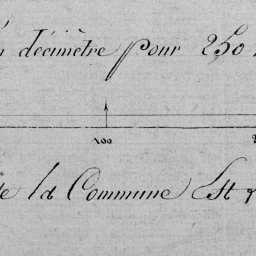 décimètre pour 250
100
la Commune Est